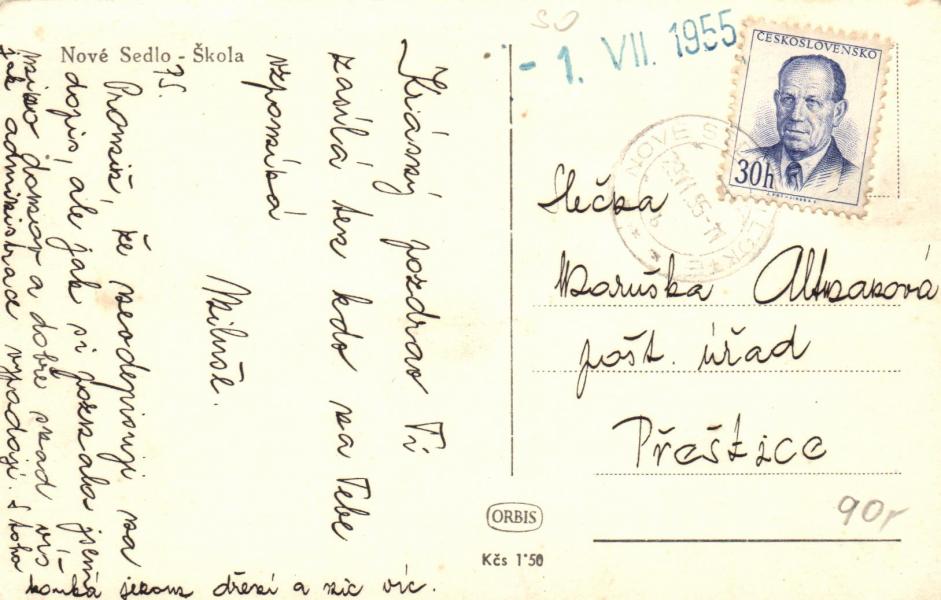 Nové Sedlo - Škola
Krásný pozdrav Ti
zasílá ten kdo na Tebe
vzpomíná
Miluše.
PS.
Promiň, že neodepisuji na
dopis, ale jak si poznala jsem
mimo domov a dobře snad víš
jak administrad vypadají. S toho
kouká jenom dření a nic víc.
- 1. VII. 1955
50
ČESKOSLOVENSKO
30h
NOVÉ S
LOKTE
Slečna
Maruška Altmanová
pošt. úřad
Přeštice
90,-
ORBIS
Kčs 1·50